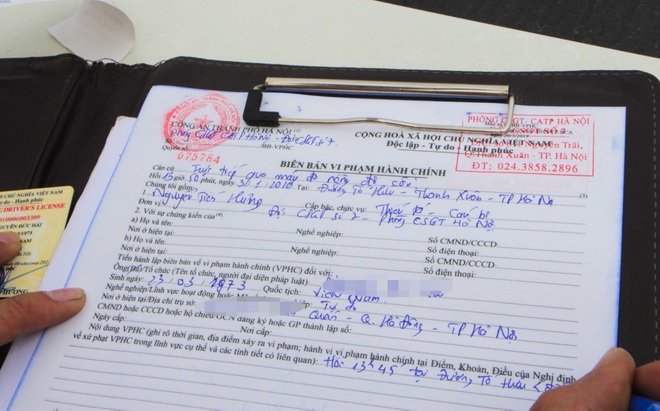 CÔNG AN THÀNH PHỐ HÀ NỘI
075764
PHÒNG CSGT- CATP HÀ NỘI
CSGT SỐ 7
Nguyễn Trãi,
Q.Thanh Xuân - TP. Hà Nội
ĐT: 024.3858.2896
CỘNG HOÀ XÃ HỘI CHỦ NGHĨA VIỆT NAM
Độc lập - Tự do - Hạnh phúc
BIÊN BẢN VI PHẠM HÀNH CHÍNH
Căn cứ Trực tiếp qua máy đo nồng độ cồn
Hồi 15 giờ 50 phút, ngày 3/1/2020 tại Đường Tố Hữu - Thanh Xuân - TP Hà Nội
Chúng tôi gồm:
1. Nguyễn Tiến Hưng Cấp bậc, chức vụ: Cán bộ
Đơn vị Đội CSGT số 7 - Phòng CSGT Hà Nội
2. Với sự chứng kiến của:
a) Họ và tên: Nghề nghiệp: Số CMND/CCCD
Nơi ở hiện tại: Số điện thoại:
b) Họ và tên: Nghề nghiệp: Số CMND/CCCD
Nơi ở hiện tại: Số điện thoại:
Tiến hành lập biên bản về vi phạm hành chính (VPHC) đối với:
Ông(Bà)/Tổ chức (Tên tổ chức, người đại diện pháp luật)
Sinh ngày: 23.03.1973 Quốc tịch: Việt Nam
Nghề nghiệp/Lĩnh vực hoạt động hoặc Tự do
Nơi ở hiện tại/Địa chỉ trụ sở: Q. Hà Đông - TP Hà Nội
CMND hoặc CCCD hoặc hộ chiếu/GCN đăng ký hoặc GP thành lập số:
Ngày cấp: Nơi cấp:
Nội dung VPHC (ghi rõ thời gian, địa điểm xảy ra vi phạm; hành vi vi phạm hành chính tại Điểm, Khoản, Điều của Nghị định
về xử phạt VPHC trong lĩnh vực cụ thể và các tình tiết có liên quan): Hồi 13h45 tại Đường Tố Hữu
CHỦ NGHĨA VIỆT NAM
/DRIVER'S LICENSE
NGUYỄN ĐỨC HẢI